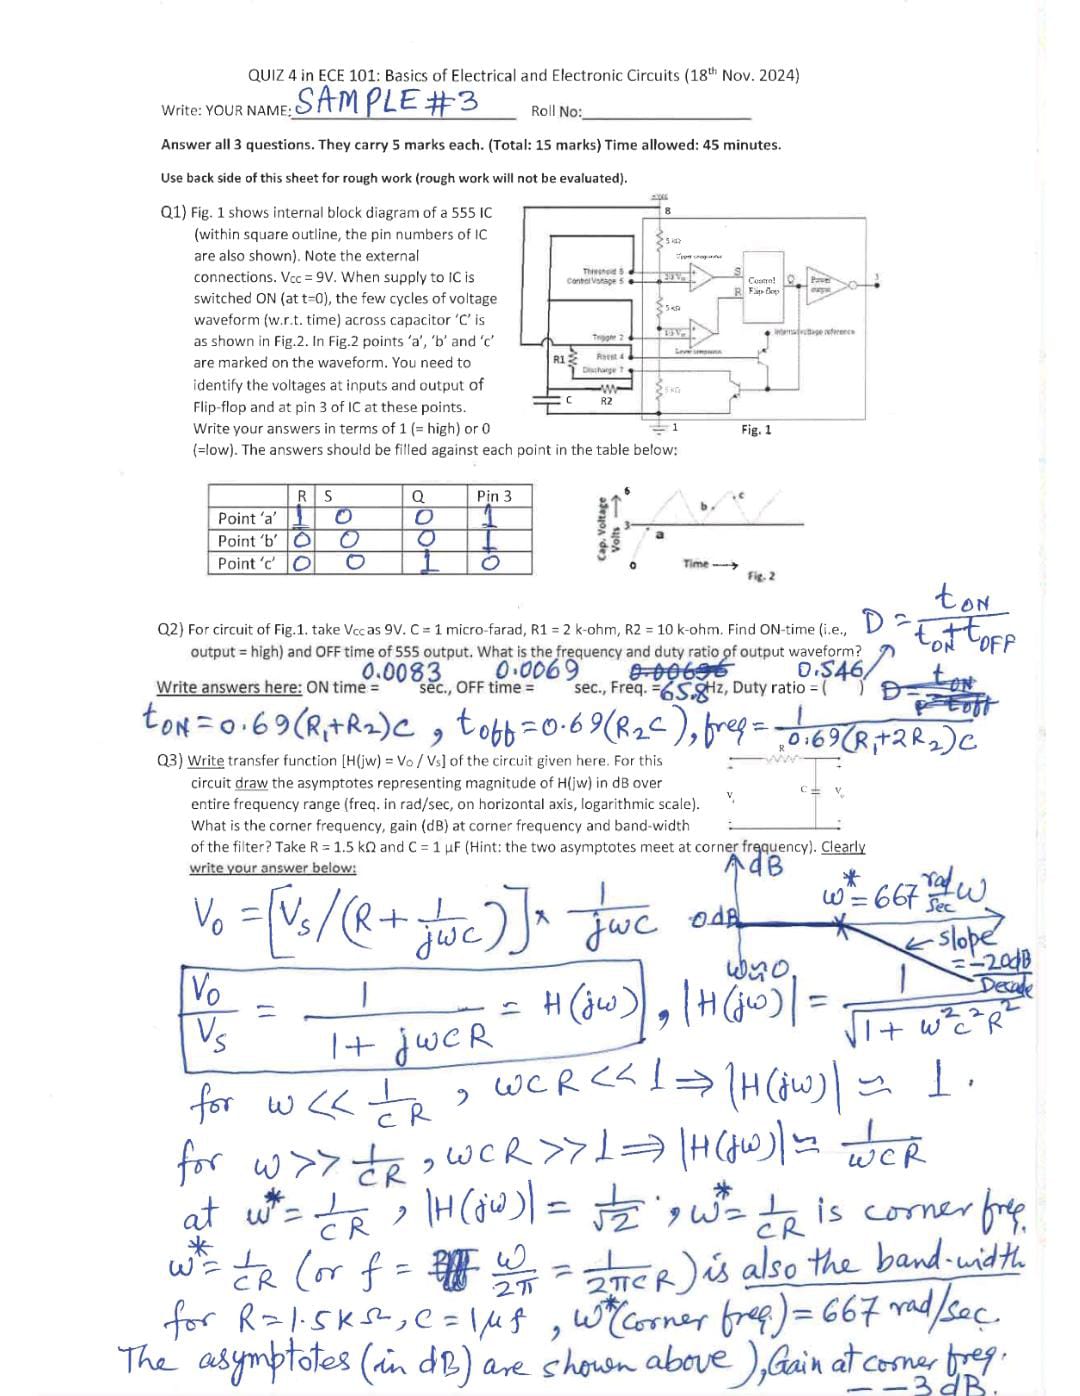 QUIZ 4 in ECE 101: Basics of Electrical and Electronic Circuits (18th Nov. 2024)
Write: YOUR NAME: SAMPLE #3 Roll No:
Answer all 3 questions. They carry 5 marks each. (Total: 15 marks) Time allowed: 45 minutes.
Use back side of this sheet for rough work (rough work will not be evaluated).
Q1) Fig. 1 shows internal block diagram of a 555 IC
(within square outline, the pin numbers of IC
are also shown). Note the external
connections. Vcc = 9V. When supply to IC is
switched ON (at t=0), the few cycles of voltage
waveform (w.r.t. time) across capacitor 'C' is
as shown in Fig.2. In Fig.2 points 'a', 'b' and 'c'
are marked on the waveform. You need to
identify the voltages at inputs and output of
Flip-flop and at pin 3 of IC at these points.
Write your answers in terms of 1 (= high) or 0
(=low). The answers should be filled against each point in the table below:
8
5 kΩ
Threshold 6
Control Voltage 5
S
R
Control
Flip-flop
Q
Power
output
3
5 kΩ
Trigger 2
Internal voltage reference
Lower comparator
R1
Reset 4
Discharge 7
5 kΩ
C
R2
1
Fig. 1
R S Q Pin 3
Point 'a' 1 0 0 1
Point 'b' 0 0 0 1
Point 'c' 0 0 1 0
Cap. Voltage
Volts
6
3
0
a
b
c
Time
Fig. 2
D = tON / tON + tOFF
Q2) For circuit of Fig.1. take Vcc as 9V. C = 1 micro-farad, R1 = 2 k-ohm, R2 = 10 k-ohm. Find ON-time (i.e.,
output = high) and OFF time of 555 output. What is the frequency and duty ratio of output waveform?
Write answers here: ON time = 0.0083 sec., OFF time = 0.0069 sec., Freq. = 65.8 Hz, Duty ratio = ( 0.546 )
tON = 0.69(R1+R2)C , toff = 0.69(R2C), freq = 1 / 0.69(R1+2R2)C
Q3) Write transfer function [H(jw) = Vo / Vs] of the circuit given here. For this
circuit draw the asymptotes representing magnitude of H(jw) in dB over
entire frequency range (freq. in rad/sec, on horizontal axis, logarithmic scale).
What is the corner frequency, gain (dB) at corner frequency and band-width
of the filter? Take R = 1.5 kΩ and C = 1 µF (Hint: the two asymptotes meet at corner frequency). Clearly
write your answer below:
R
C
dB
0dB
ω* = 667 rad/sec
ω
slope
= -20dB/Decade
ω≈0
Vo = [Vs/(R + 1/jωc)] × 1/jωc
Vo/Vs = 1 / 1 + jωCR = H(jω) , |H(jω)| = 1 / √1 + ω²c²R²
for ω << 1/CR , ωCR << 1 ⇒ |H(jω)| ≃ 1.
for ω >> 1/CR , ωCR >> 1 ⇒ |H(jω)| ≃ 1/ωCR
at ω* = 1/CR , |H(jω)| = 1/√2 , ω* = 1/CR is corner freq.
ω* = 1/CR (or f = ω/2π = 1/2πCR) is also the band-width
for R = 1.5KΩ, C = 1µf , ω*(corner freq.) = 667 rad/sec.
The asymptotes (in dB) are shown above), Gain at corner freq.
= -3dB.